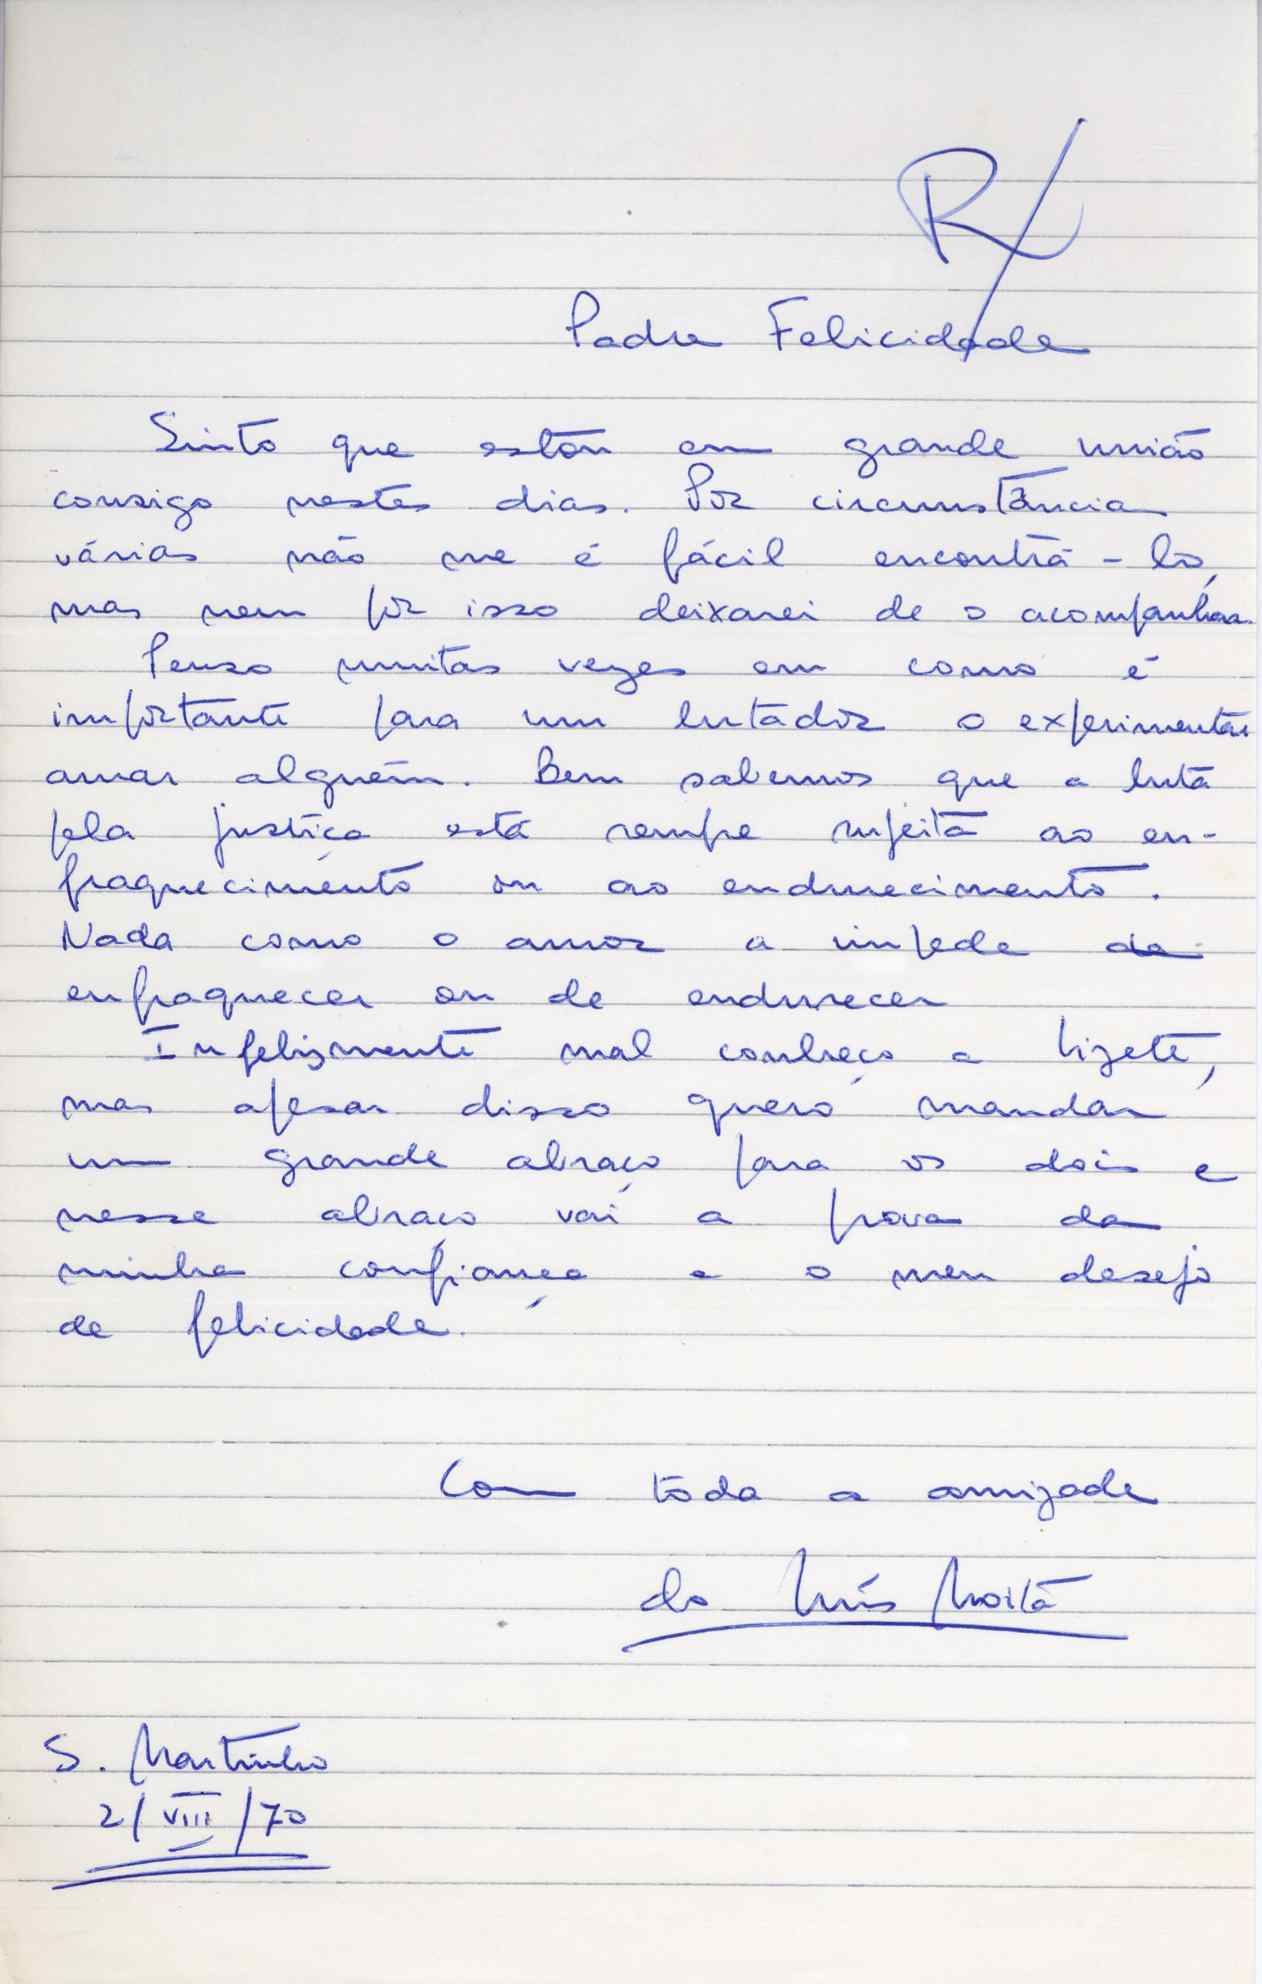 R/
Padre Felicidade
Sinto que estou em grande união
consigo nestes dias. Por circunstância
várias não me é fácil encontrá-lo,
mas nem por isso deixarei de o acompanhar.
Penso muitas vezes em como é
importante para um lutador o experimentar
amar alguém. Bem sabemos que a luta
pela justiça está sempre sujeita ao en-
fraquecimento ou ao endurecimento.
Nada como o amor a impede de
enfraquecer ou de endurecer
Infelizmente mal conheço a Lizete,
mas apesar disso quero mandar
um grande abraço para os dois e
nesse abraço vai a prova da
minha confiança e o meu desejo
de felicidade.
Com toda a amizade
do Luís Moita
S. Martinho
2/VIII/70